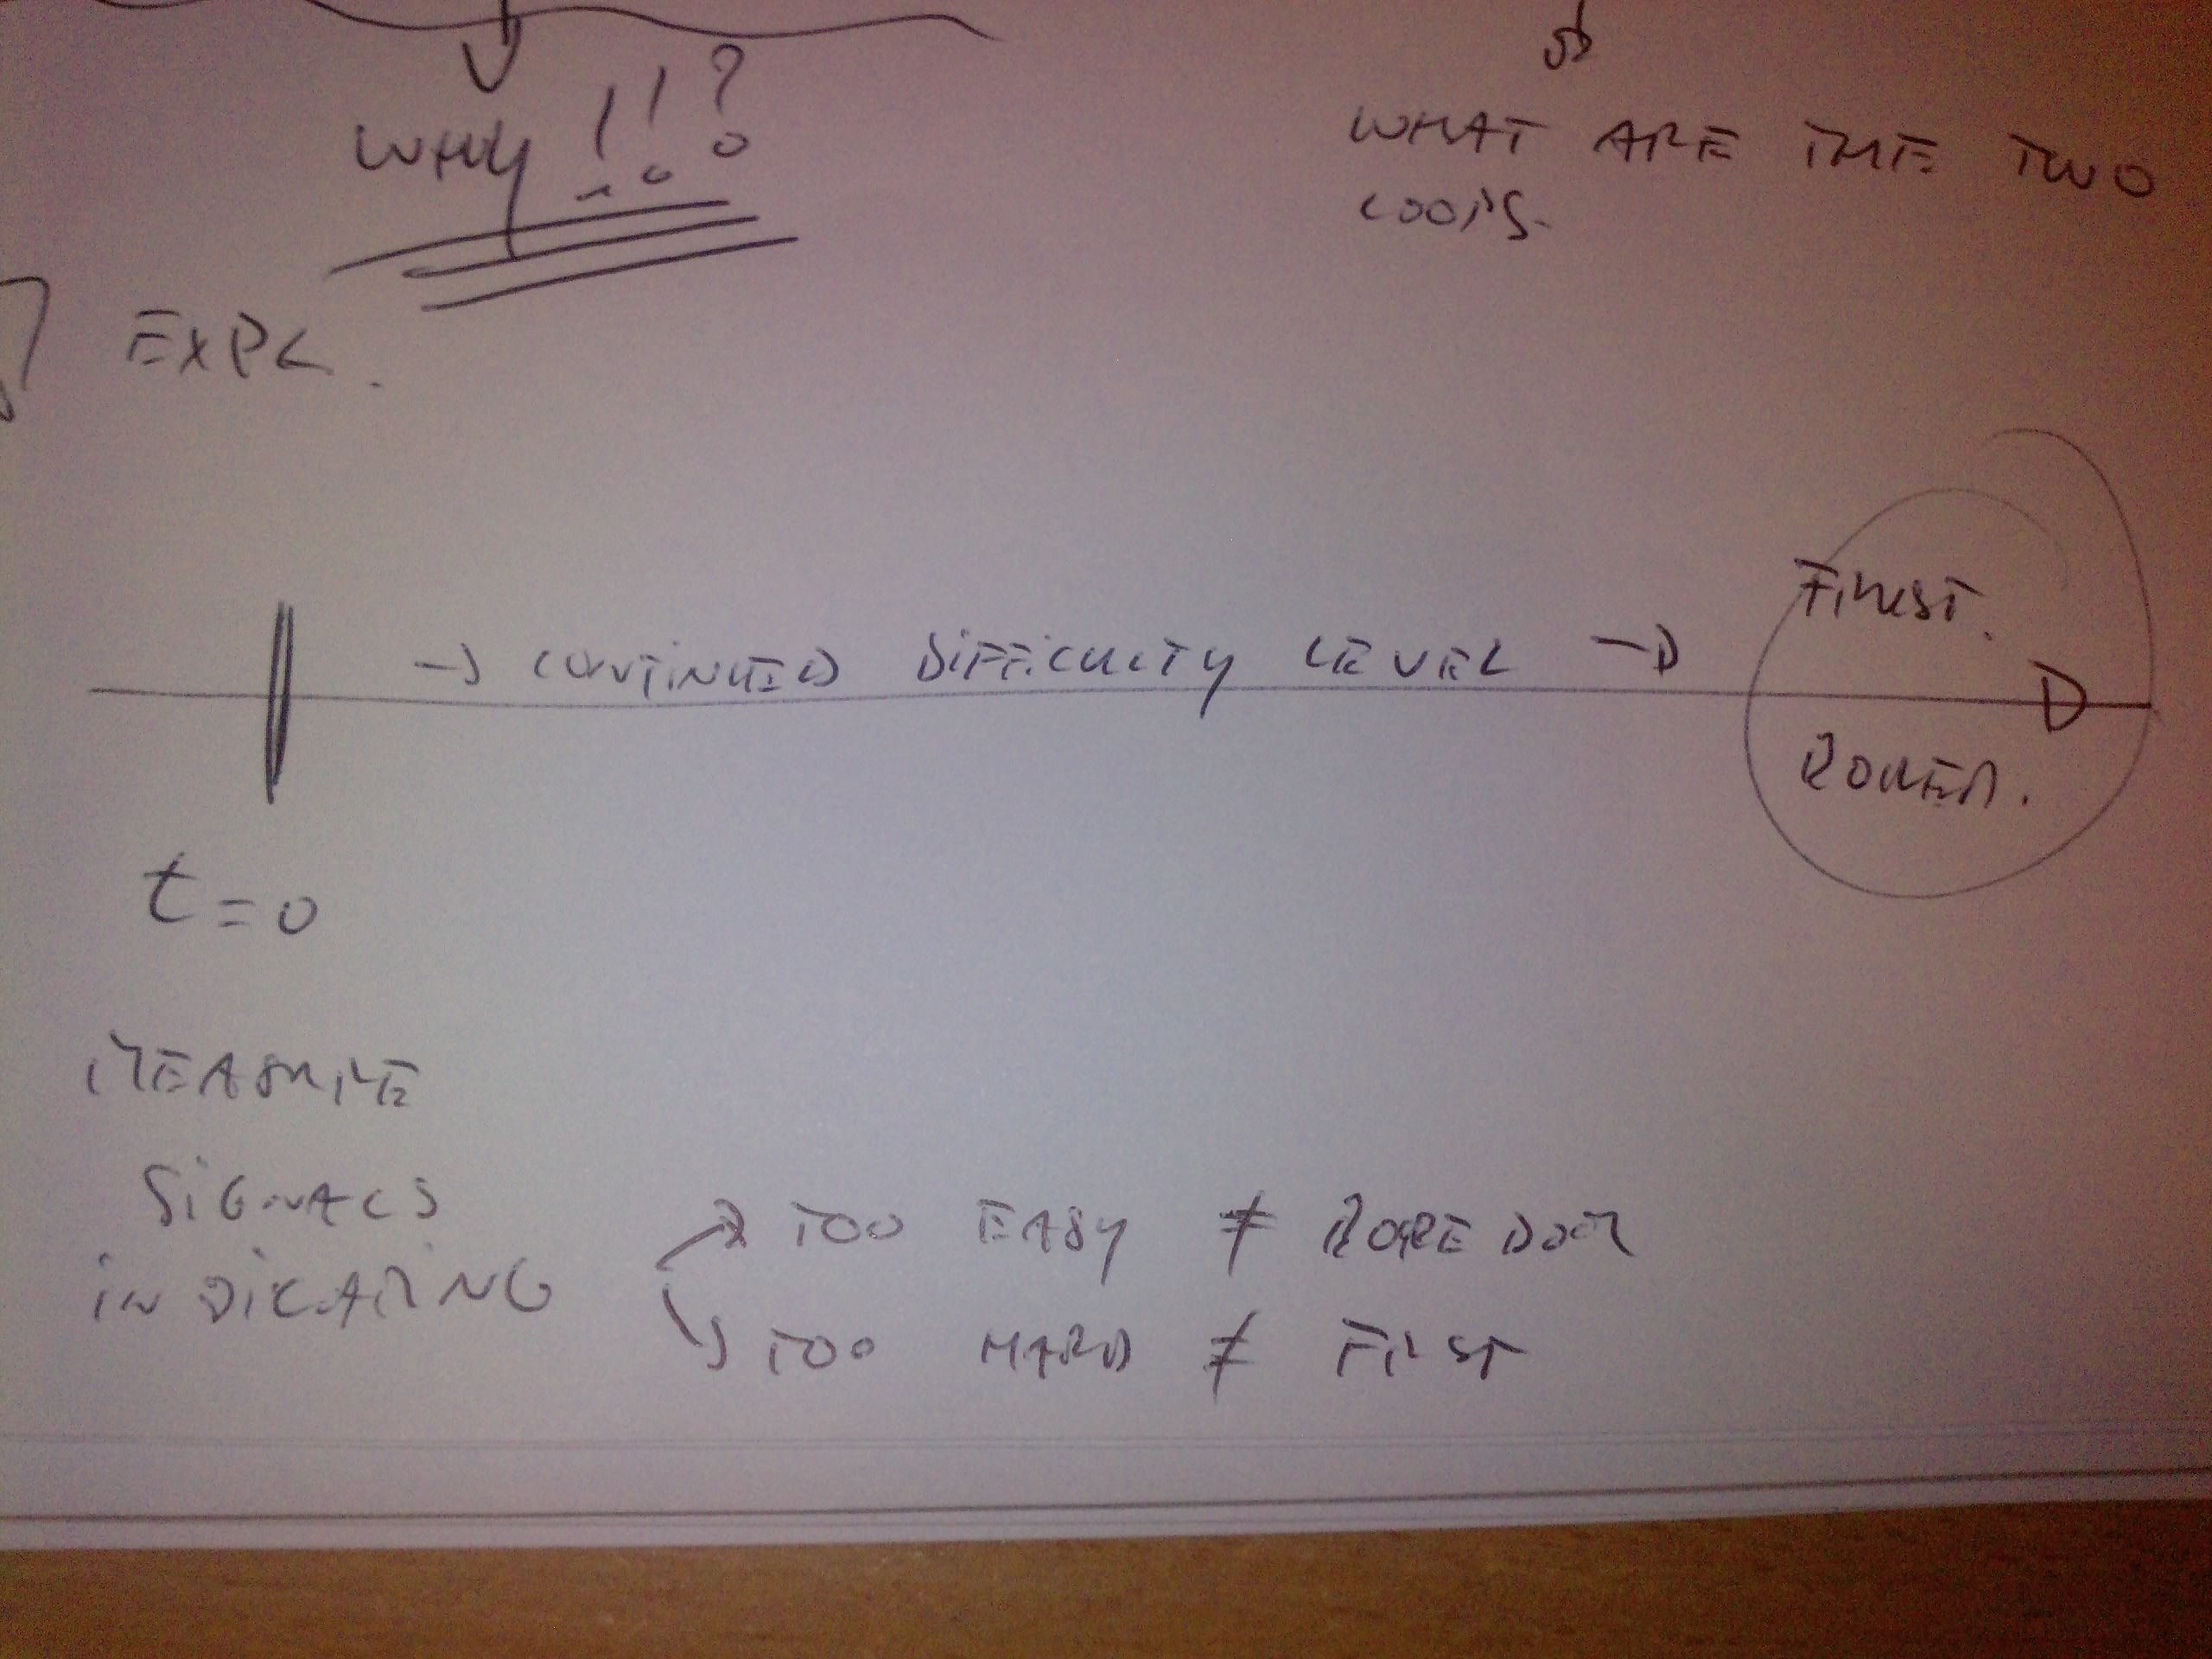 WHY !!?
WHAT ARE THE TWO
LOOPS.
EXPL.
→ CONTINUED DIFFICULTY LEVEL →
FRUST.
BORED.
t=0
MEASURE
SIGNALS
INDICATING
TOO EASY ≠ BOREDOM
TOO HARD ≠ FRUST